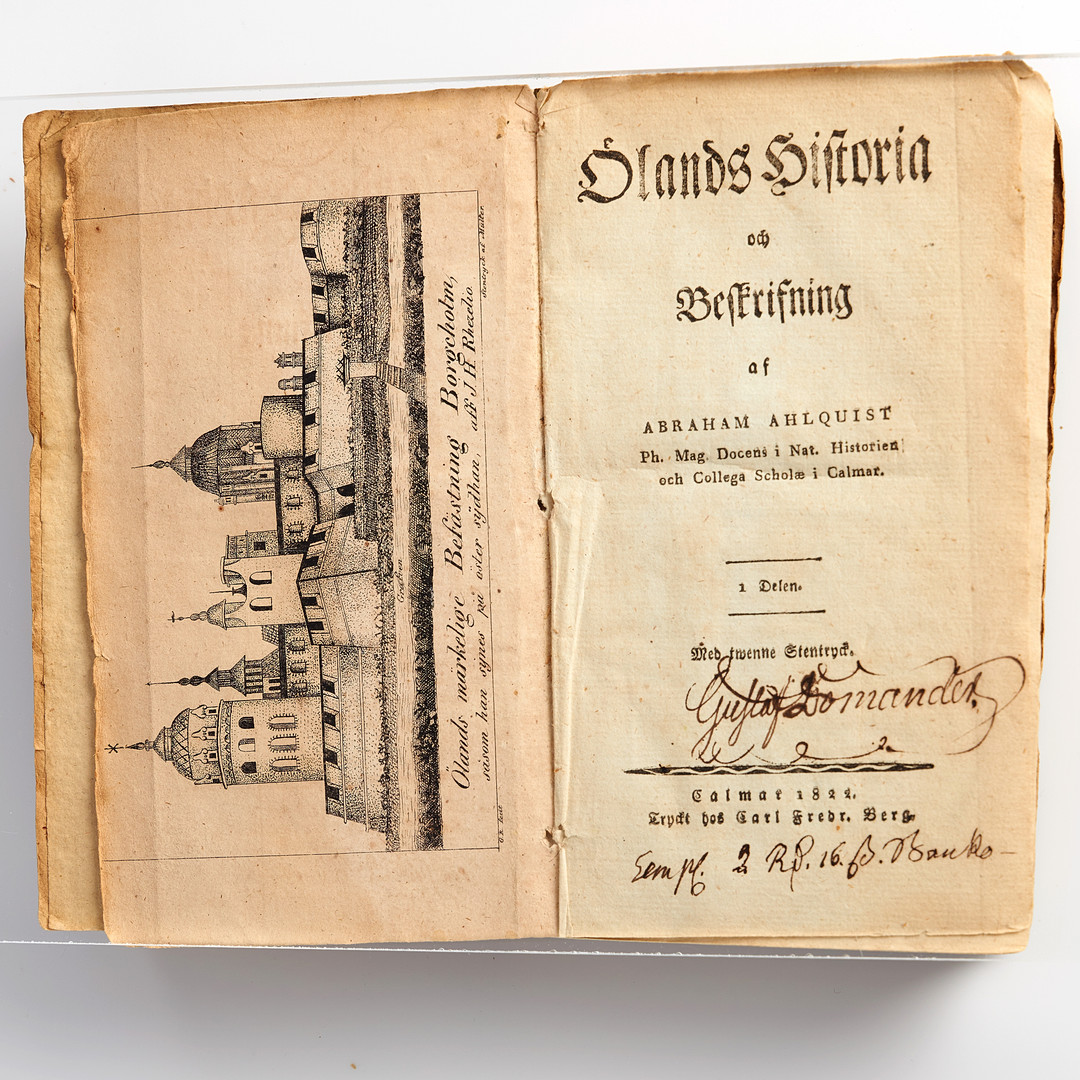 Ölands märkelige Befästning Borgeholm,
såsom han synes på öster sÿdhan, aff J. H. Rhezelio.
Stentryck at Müller.
Graafven
Ölands Historia
och
Beskrifning
af
ABRAHAM AHLQUIST
Ph. Mag. Docens i Nat. Historien
och Collega Scholæ i Calmar.
1 Delen.
Med twenne Stentryck.
Gustaf Bomander.
Calmar 1822.
Tryckt hos Carl Fredr. Berg.
2 Rd. 16. ß. Banko